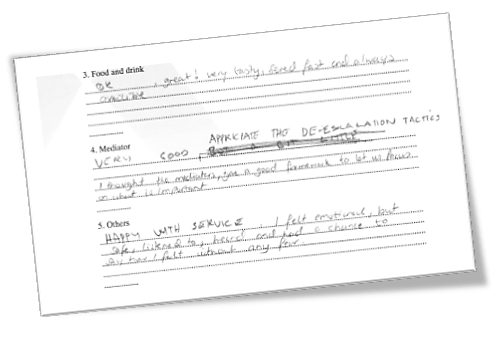 3. Food and drink
OK, great! very tasty, served fast and always
available
4. Mediator
APPRICIATE THE DE-ESCALATION TACTICS
VERY GOOD,
I thought the mediators, gave a good framework to let us focus
on what is important
5. Others
HAPPY WITH SERVICE, I felt emotional, but
safe, listened to, heard and had a chance to
say how I felt without any fear.